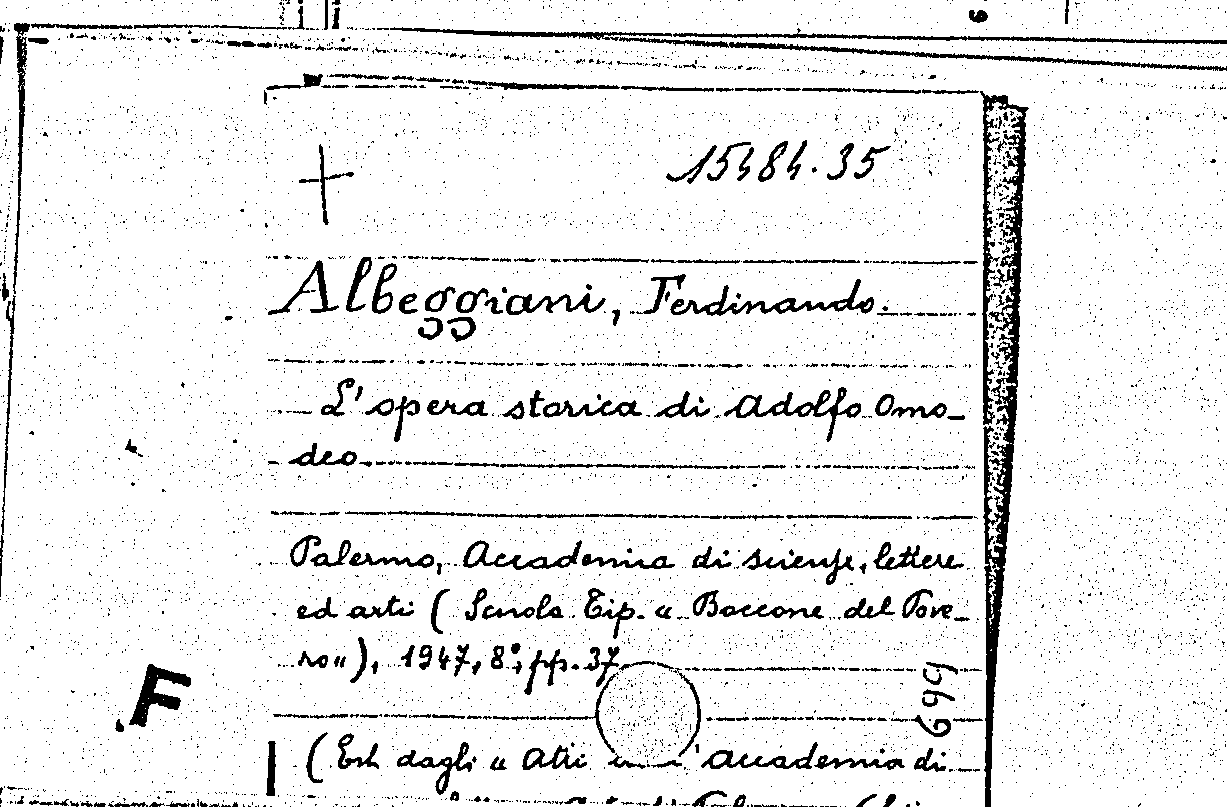 15484.35
Albeggiani, Ferdinando.
L'opera storica di Adolfo Omo-
deo
Palermo, Accademia di scienze, lettere
ed arti ( Scuola Tip. « Boccone del Pove-
ro»), 1947, 8°, pp. 37
699
F
( Estr. dagli « Atti Accademia di